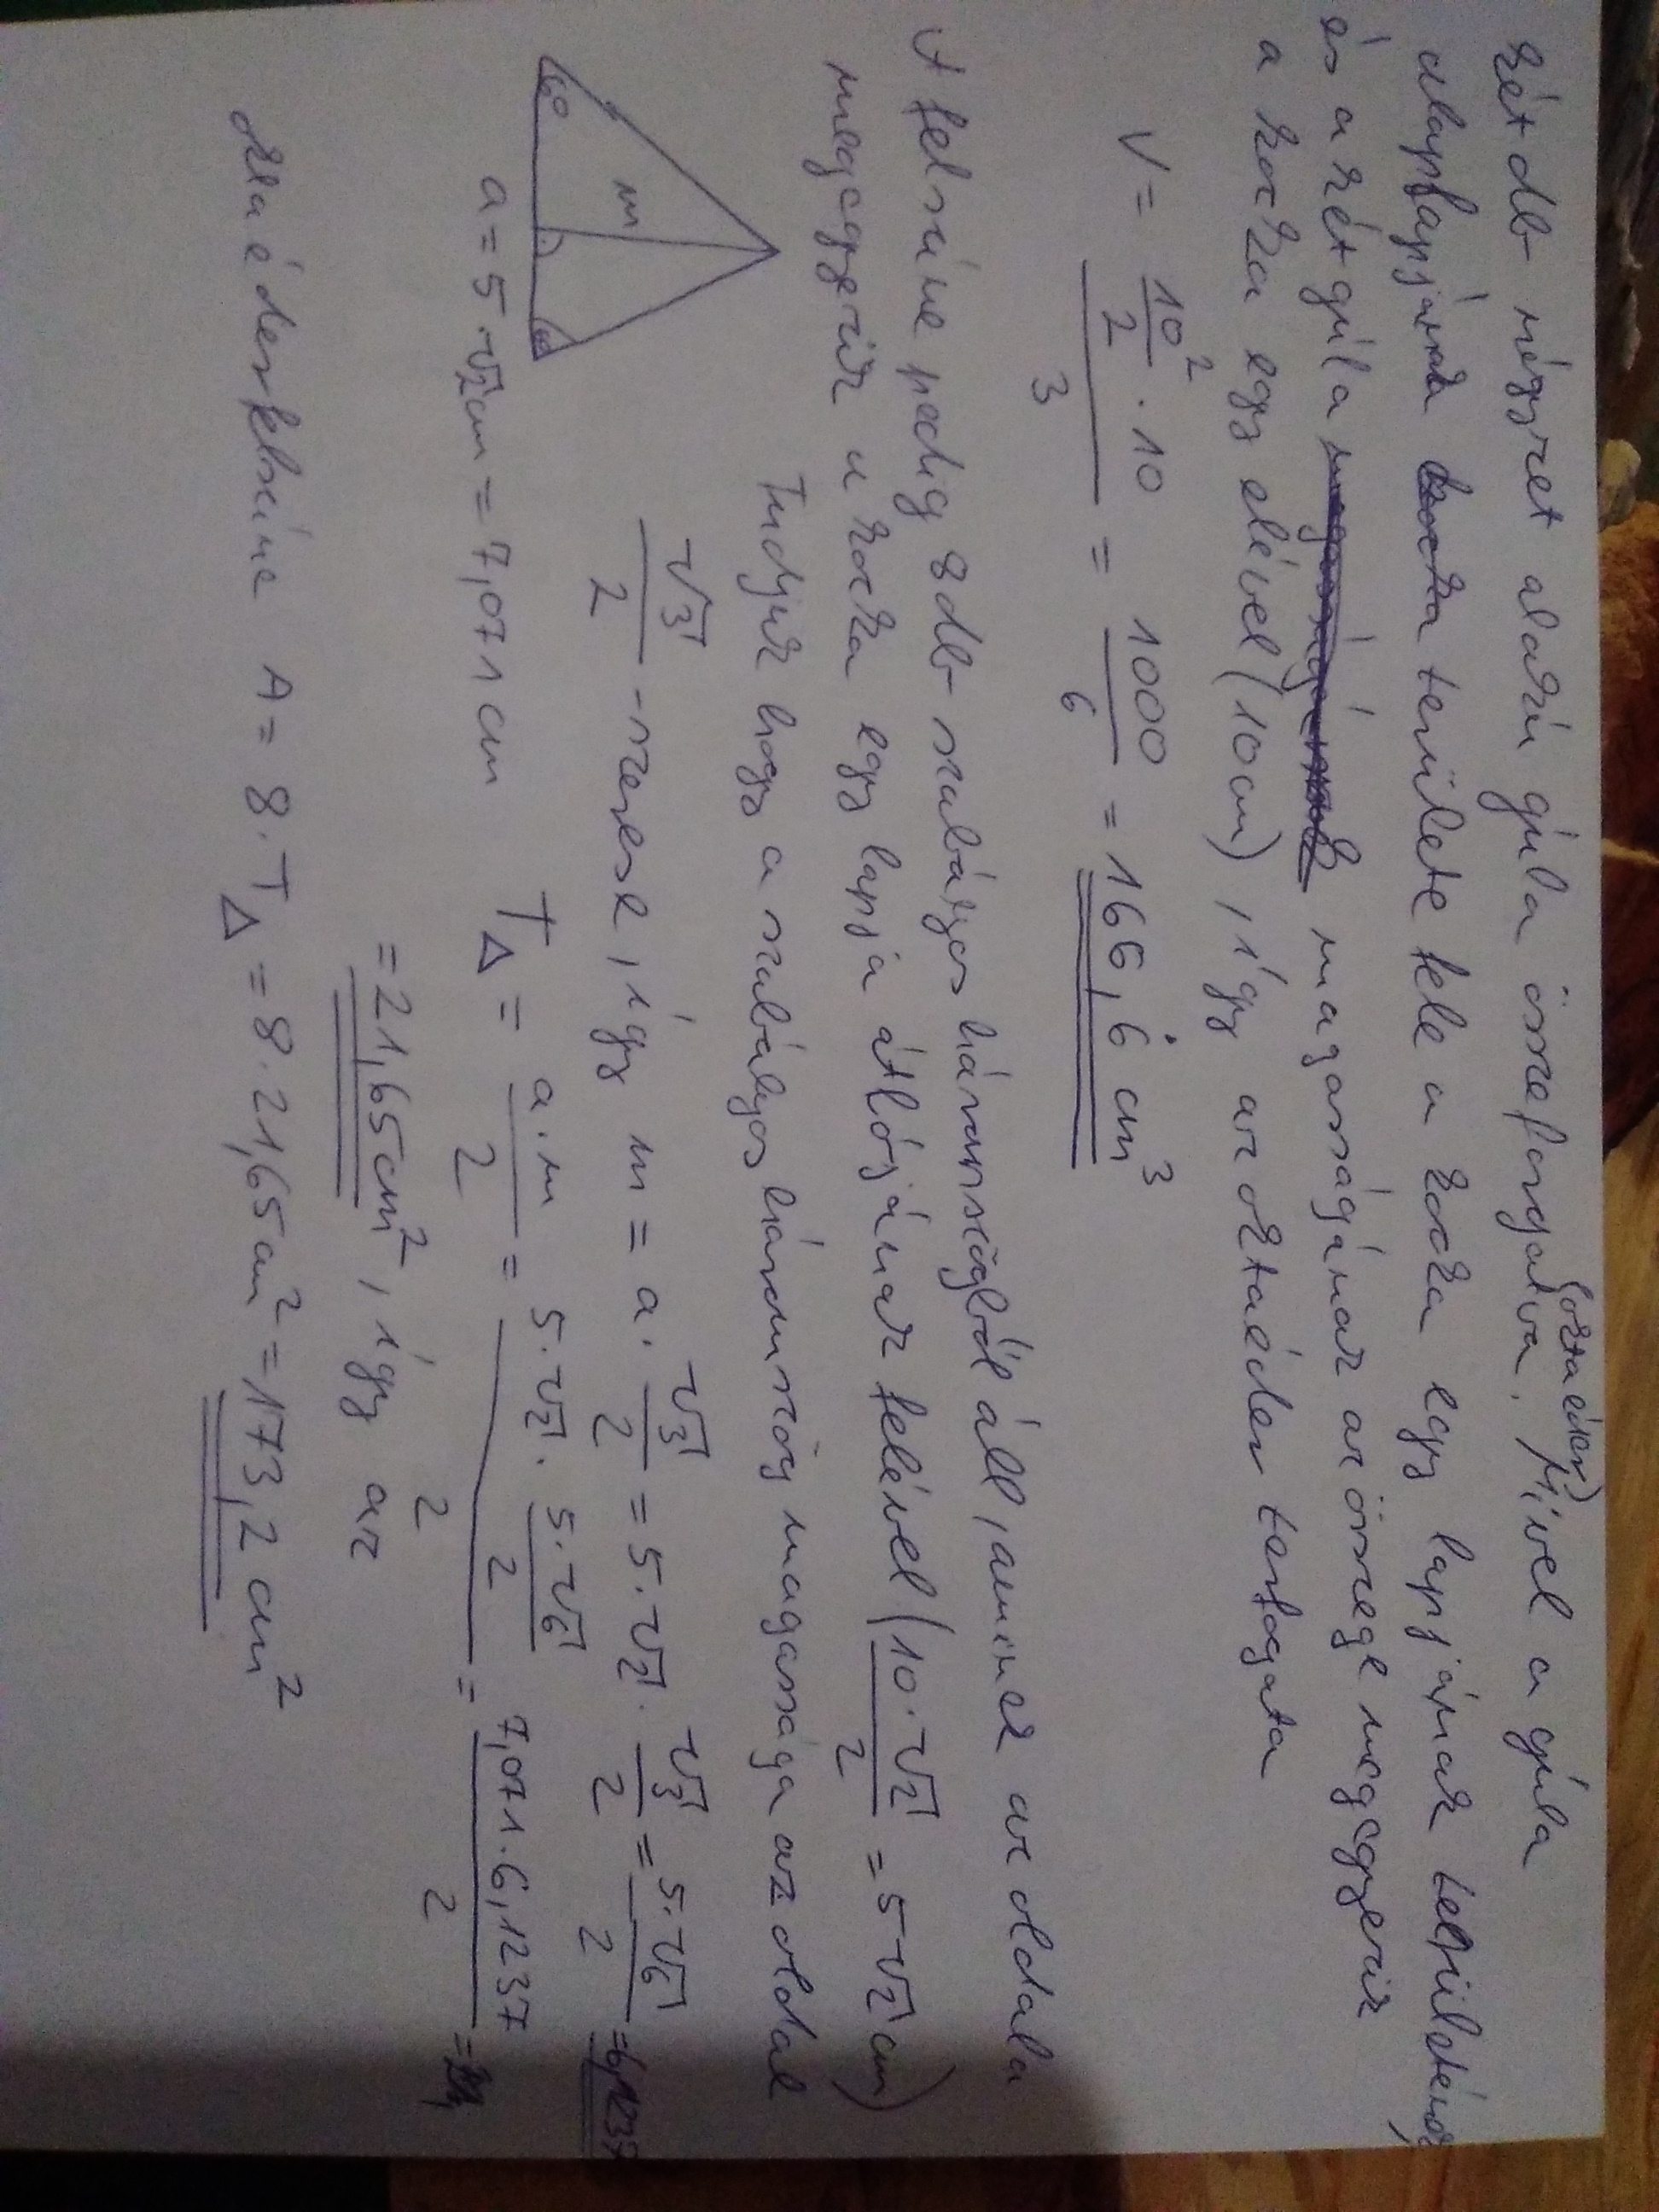 (oktaéder)
két db négyzet alakú gúla összeforgatva. Mivel a gúla
alaplapjának területe fele a kocka egy lapjának területének,
és a két gúla magasságának az összege megegyezik
a kocka egy élével (10cm), így az oktaéder térfogata
V = 10²/2 · 10 / 3 = 1000/6 = 166,6̇ cm³
A felszíne pedig 8 db szabályos háromszögből áll, aminek az oldala
megegyezik a kocka egy lapja átlójának felével (10·√2/2 = 5√2 cm)
Tudjuk hogy a szabályos háromszög magassága az oldal
√3/2 -szerese, így m = a · √3/2 = 5·√2 · √3/2 = 5·√6/2 = 6,1237
60
m
60
a = 5·√2 cm = 7,071 cm
T△ = a·m/2 = 5·√2 · 5·√6/2 / 2 = 7,071·6,1237/2 =
= 21,65 cm², így az
oktaéder felszíne A = 8·T△ = 8·21,65 cm² = 173,2 cm²